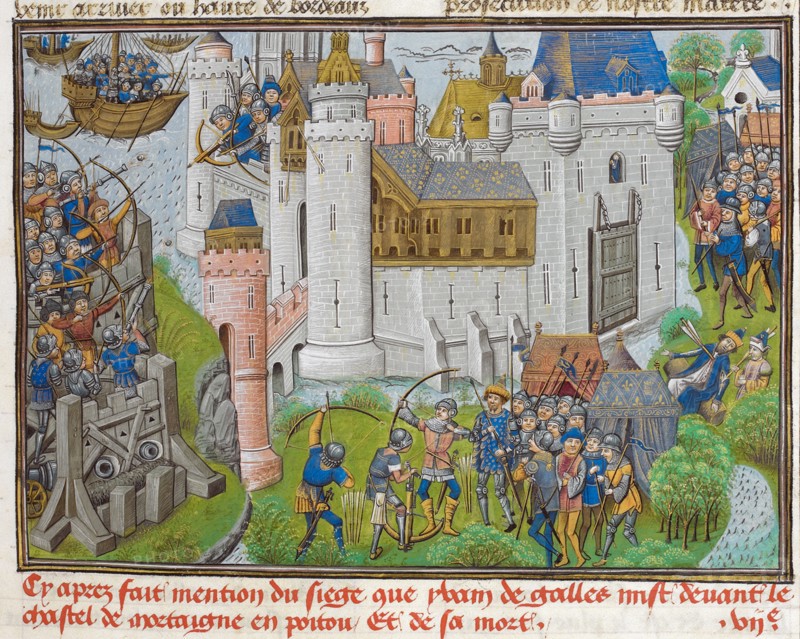 venir arriver ou havre de bordeaux
prosecution de nostre matere .
Cy aprez fait mention du siege que yvain de galles mist devant le
chastel de mortaigne en poitou / Et de sa mort . . vije